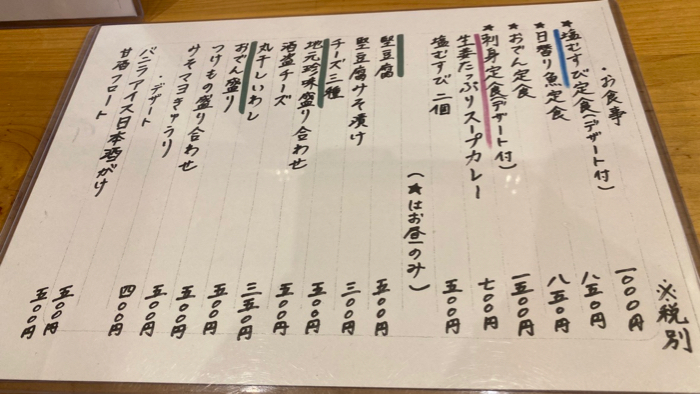 ※税別
・お食事
★塩むすび定食(デザート付) 一〇〇〇円
★日替り魚定食 八五〇円
★おでん定食 八五〇円
★刺身定食(デザート付) 一五〇〇円
生姜たっぷりスープカレー 七〇〇円
塩むすび二個 五〇〇円
(★はお昼のみ)
堅豆腐 五〇〇円
堅豆腐みそ漬け 三〇〇円
チーズ三種 五〇〇円
地元珍味盛り合わせ 五〇〇円
酒盗チーズ 三五〇円
丸干しいわし 五〇〇円
おでん盛り 五〇〇円
つけもの盛り合わせ 五〇〇円
みそマヨきゅうり 四〇〇円
・デザート
バニラアイス日本酒がけ 五〇〇円
甘酒フロート 五〇〇円